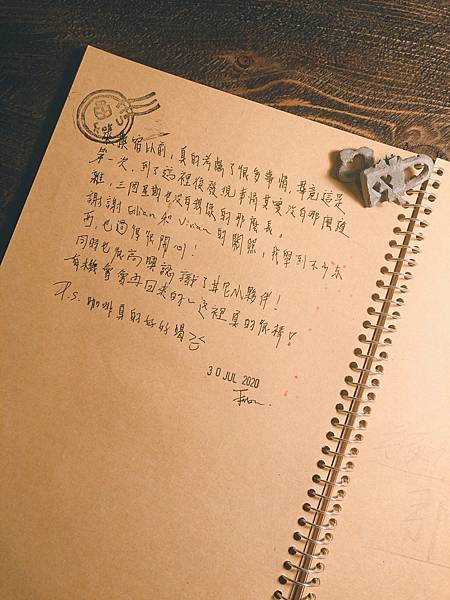 來換宿以前，真的考慮了很多事情，畢竟這是
第一次，到了這裡後發現事情其實沒有那麼複
雜，三個星期也沒有想像的那麼長。
謝謝 Ethan 和 Vivian 的關照，我學到不少東
西，也過得很開心！
同時也很高興認識了其它小夥伴！
有機會會再回來的~這裡真的很棒！
P.S. 咖啡真的好好喝
30 JUL 2020